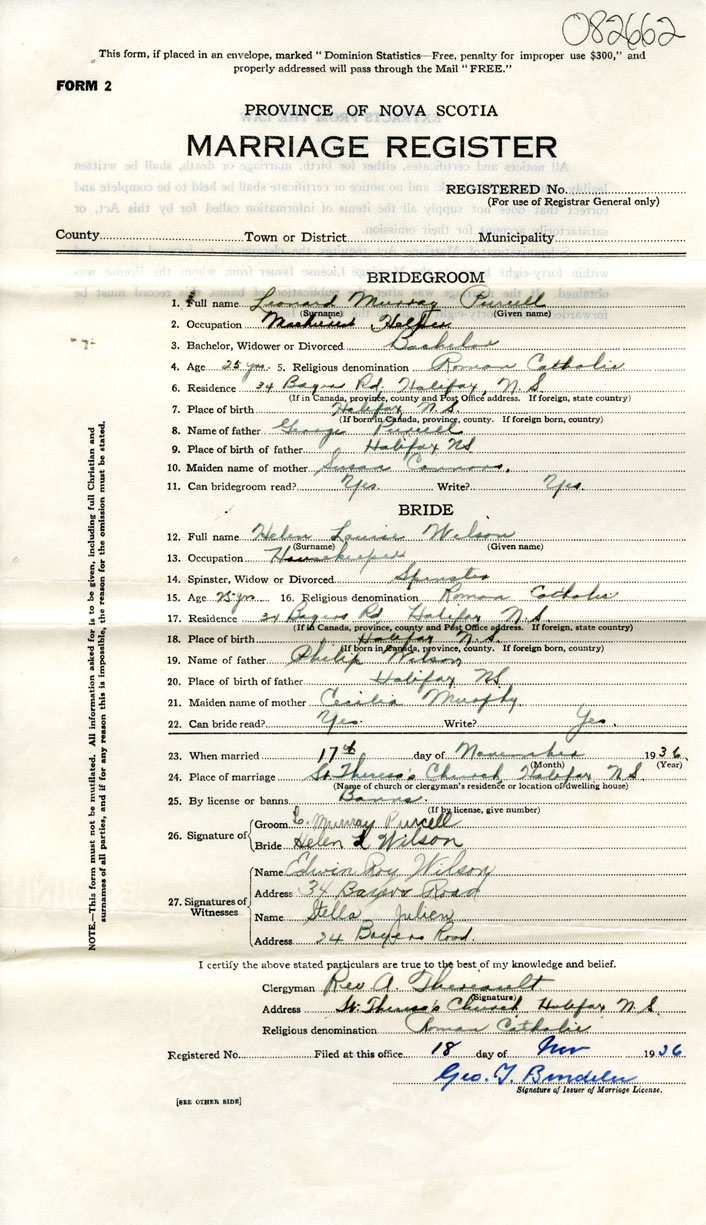 082662
This form, if placed in an envelope, marked "Dominion Statistics—Free, penalty for improper use $300," and
properly addressed will pass through the Mail "FREE."
FORM 2
PROVINCE OF NOVA SCOTIA
MARRIAGE REGISTER
REGISTERED No.
(For use of Registrar General only)
County Town or District Municipality
BRIDEGROOM
1. Full name Leonard Murray Purcell
(Surname) (Given name)
2. Occupation Machinist Helper
3. Bachelor, Widower or Divorced Bachelor
4. Age 25 yrs. 5. Religious denomination Roman Catholic
6. Residence 34 Bayers Rd. Halifax, N.S.
(If in Canada, province, county and Post Office address. If foreign, state country)
7. Place of birth Halifax N.S.
(If born in Canada, province, county. If foreign born, country)
8. Name of father George Purcell
9. Place of birth of father Halifax NS
10. Maiden name of mother Susan Connors.
11. Can bridegroom read? Yes. Write? Yes.
BRIDE
12. Full name Helen Louise Wilson
(Surname) (Given name)
13. Occupation Housekeeper
14. Spinster, Widow or Divorced Spinster
15. Age 25 yrs 16. Religious denomination Roman Catholic
17. Residence 34 Bayers Rd Halifax N.S.
(If in Canada, province, county and Post Office address. If foreign, state country)
18. Place of birth Halifax N.S.
(If born in Canada, province, county. If foreign born, country)
19. Name of father Philip Wilson
20. Place of birth of father Halifax NS.
21. Maiden name of mother Cecilia Murphy.
22. Can bride read? Yes. Write? Yes.
23. When married 17th day of November 1936.
(Month) (Year)
24. Place of marriage St Theresa's Church, Halifax N.S
(Name of church or clergyman's residence or location of dwelling house)
25. By license or banns Banns.
(If by license, give number)
26. Signature of
Groom L. Murray Purcell
Bride Helen L Wilson
27. Signatures of Witnesses
Name Edwin Roy Wilson
Address 34 Bayers Road
Name Stella Julien
Address 34 Bayers Road.
I certify the above stated particulars are true to the best of my knowledge and belief.
Clergyman Rev A. Thereault
(Signature)
Address St. Theresa's Church Halifax N.S.
Religious denomination Roman Catholic
Registered No. Filed at this office 18 day of Nov 1936
Geo. T.
Signature of Issuer of Marriage License.
[SEE OTHER SIDE]
NOTE.—This form must not be mutilated. All information asked for is to be given, including full Christian and
surnames of all parties, and if for any reason this is impossible, the reason for the omission must be stated.